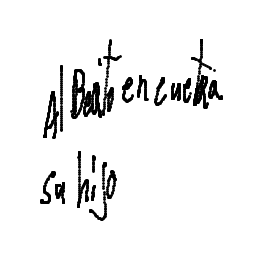 Al Beaito encuetra
su hijo